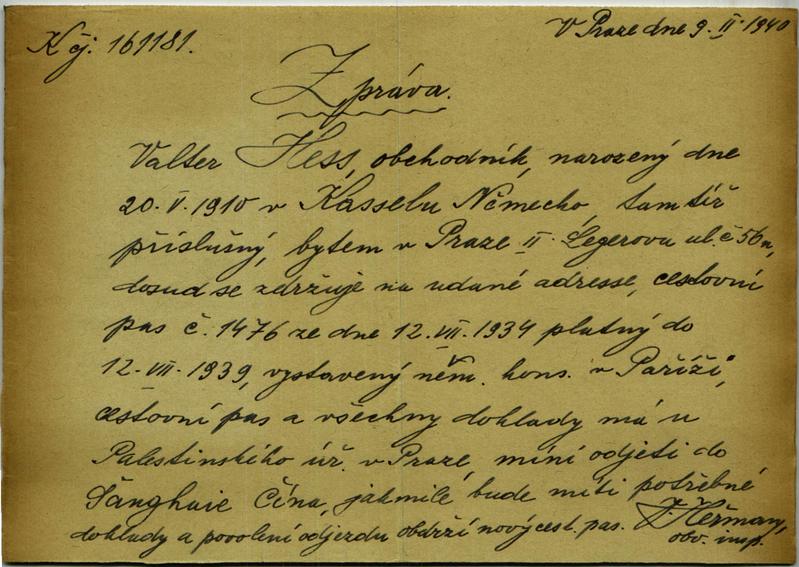 K čj. 161181.
V Praze dne 9. II. 1940
Zpráva.
Valter Hess, obchodník, narozený dne
20. V. 1910 v Kasselu Německo, tamtíž
příslušný, bytem v Praze II. Legerova ul. č 56a,
dosud se zdržuje na udané adresse, cestovní
pas č. 1476 ze dne 12. VII. 1934 platný do
12. VII. 1939, vystavený něm. kons. v Paříži,
cestovní pas a všechny doklady má u
Palestinského úř. v Praze, míní odjeti do
Šanghaie Čína, jakmile bude míti potřebné
doklady a povolení odjezdu obdrží nový cest. pas.
Heřman,
obv. insp.